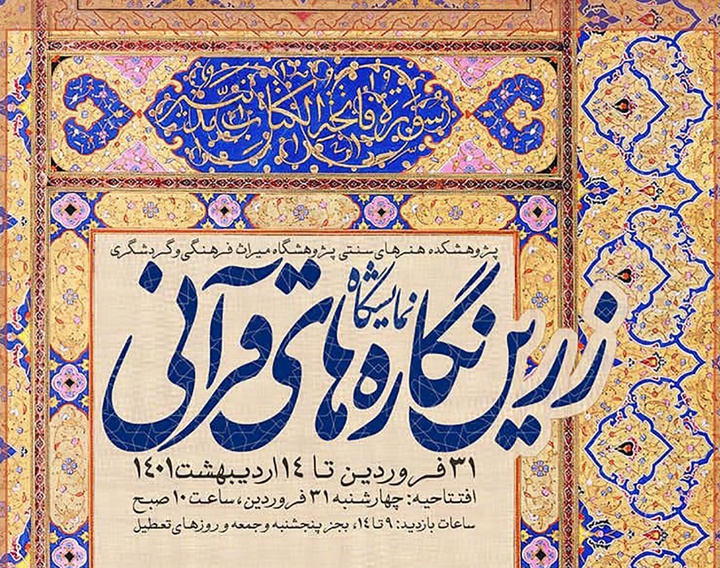 سورة فاتحة الكتاب
پژوهشکده هنرهای سنتی پژوهشگاه میراث فرهنگی و گردشگری
نمایشگاه
زرین نگاره‌های قرآنی
۳۱ فروردین تا ۱۴ اردیبهشت ۱۴۰۱
افتتاحیه: چهارشنبه ۳۱ فروردین، ساعت ۱۰ صبح
ساعات بازدید: ۹ تا ۱۴، بجز پنجشنبه و جمعه و روزهای تعطیل